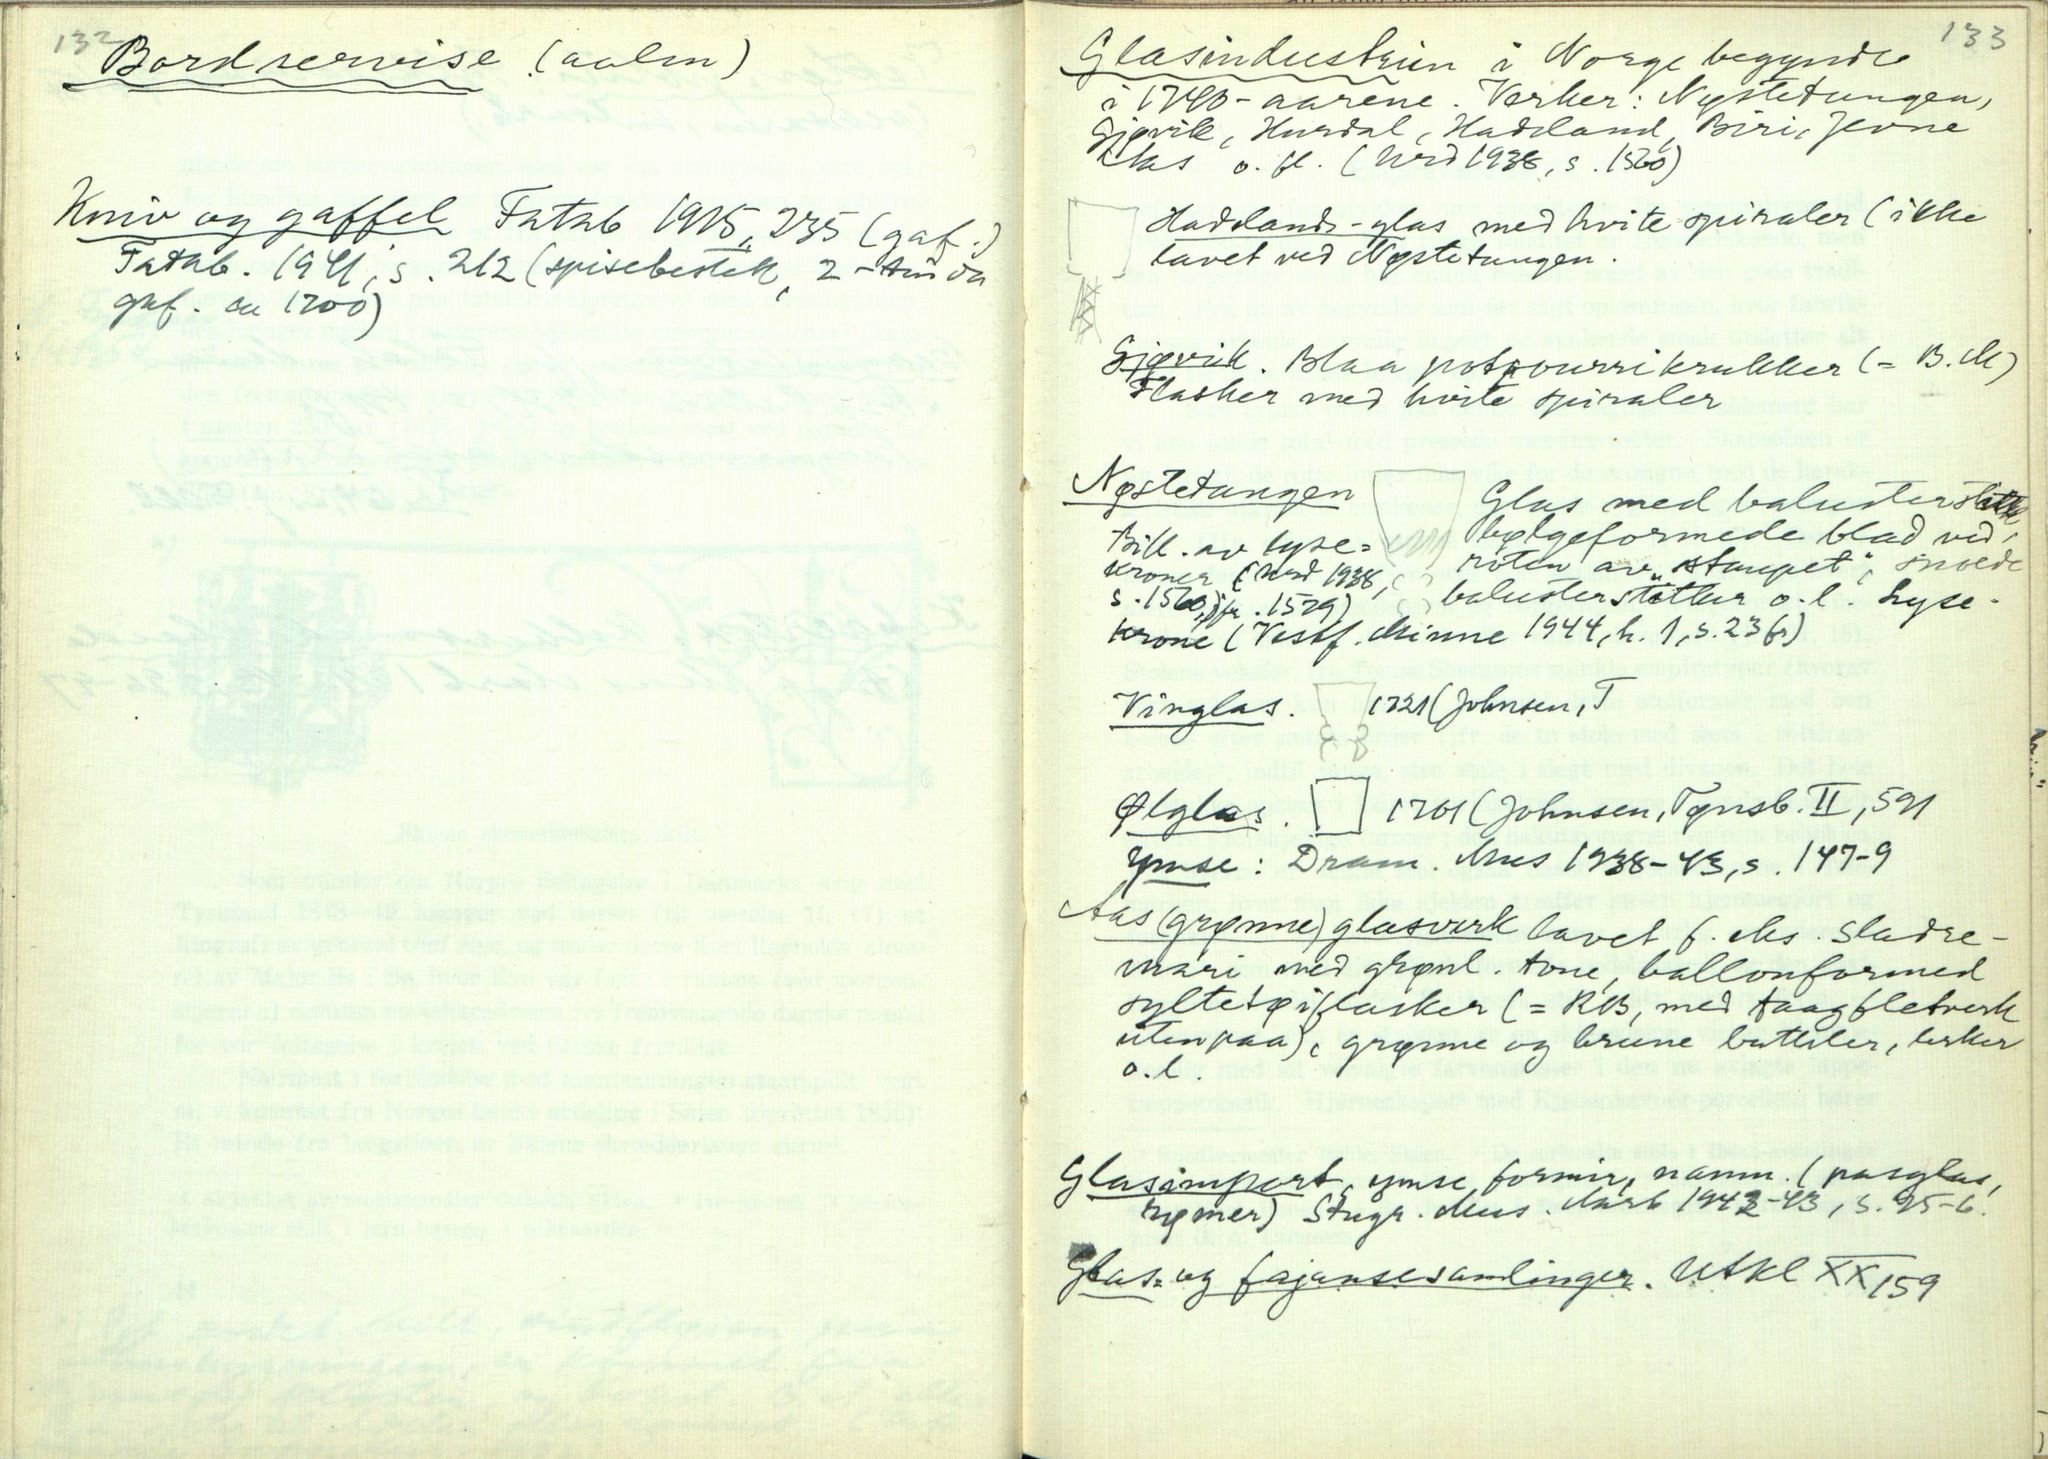 132
Bordservise (aalm)
Kniv og gaffel Fatab 1915, 235 (gaf.)
Fatab. 1941, s. 212 (spisebestek, 2-
gaf. ca 1700)
133
Glasindustrien i Norge begyndte
i 1740-aarene. Verker: Nøstetangen,
Gjøvik, Hurdal, Hadeland, Biri, Jevne
Aas o. fl. (Urd 1938, s. 1560)
Hadelands-glas med hvite spiraler (ikke
lavet ved Nøstetangen.
Gjøvik. Blaa potpourrikrukker (= B.M)
Flasker med hvite spiraler
Nøstetangen Glas med baluster
Bill. av lyse= bølgeformede blad ved
kroner (Urd 1938, roten av "staupet", snoede
s. 1560, jfr. 1579) balusterstetter o.l. Lyse-
krone (Vestf. Minne 1944, h. 1, s. 23 fr)
Vinglas. 1721 (Johnsen, T
Ølglas. 1701 (Johnsen, Tønsb. II, 591
Ymse: Dram. Mus 1938-43, s. 147-9
Aas (grønne) glasverk lavet f. eks. Sladre-
mari med grønl. tone, ballonformed
syltetøiflasker (= RB, med taagfletverk
utenpaa), grønne og brune butteler, lerker
o.l.
Glasimport, ymse former, namn. (pasglas,
rømer) Stugr. Mus. Aarb 1942-43, s. 95-6.
Glas- og fajansesamlinger. Utkl XX, 159